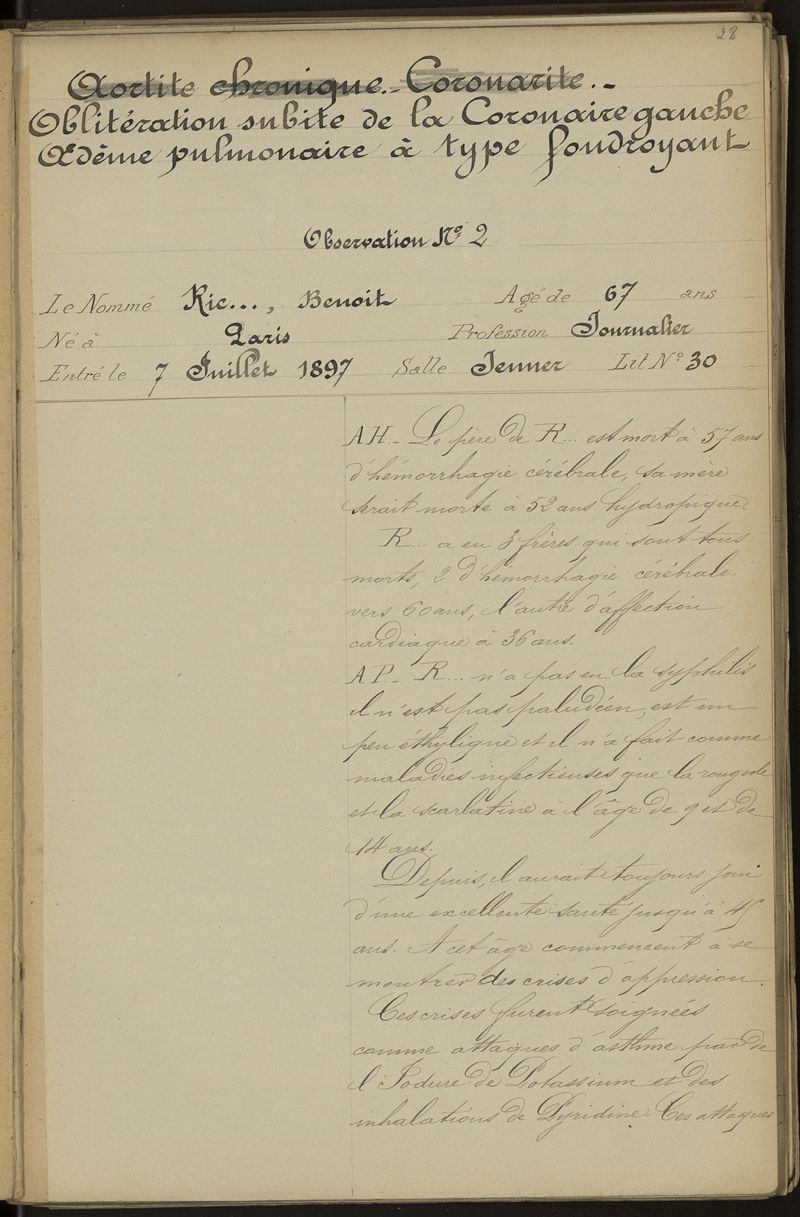 28
Aortite chronique. - Coronarite. -
Oblitération subite de la Coronaire gauche
Œdème pulmonaire à type foudroyant
Observation No 2
Le Nommé Ric..., Benoit Agé de 67 ans
Né à Paris Profession Journalier
Entré le 7 Juillet 1897 Salle Jenner Lit No 30
AH - Le père de R... est mort à 57 ans
d'hémorrhagie cérébrale, sa mère
serait morte à 52 ans hydropique.
R... a eu 3 frères qui sont tous
morts, 2 d'hémorrhagie cérébrale
vers 60 ans, l'autre d'affection
cardiaque à 36 ans.
AP - R... n'a pas eu la syphilis
il n'est pas paludéen, est un
peu éthylique et il n'a fait comme
maladies infectieuses que la rougeole
et la scarlatine à l'âge de 9 et de
14 ans.
Depuis, il aurait toujours joui
d'une excellente santé jusqu'à 45
ans. A cet âge commencent à se
montrer des crises d'oppression.
Ces crises furent soignées
comme attaques d'asthme par de
l'Iodure de Potassium et des
inhalations de Pyridine. Ces attaques